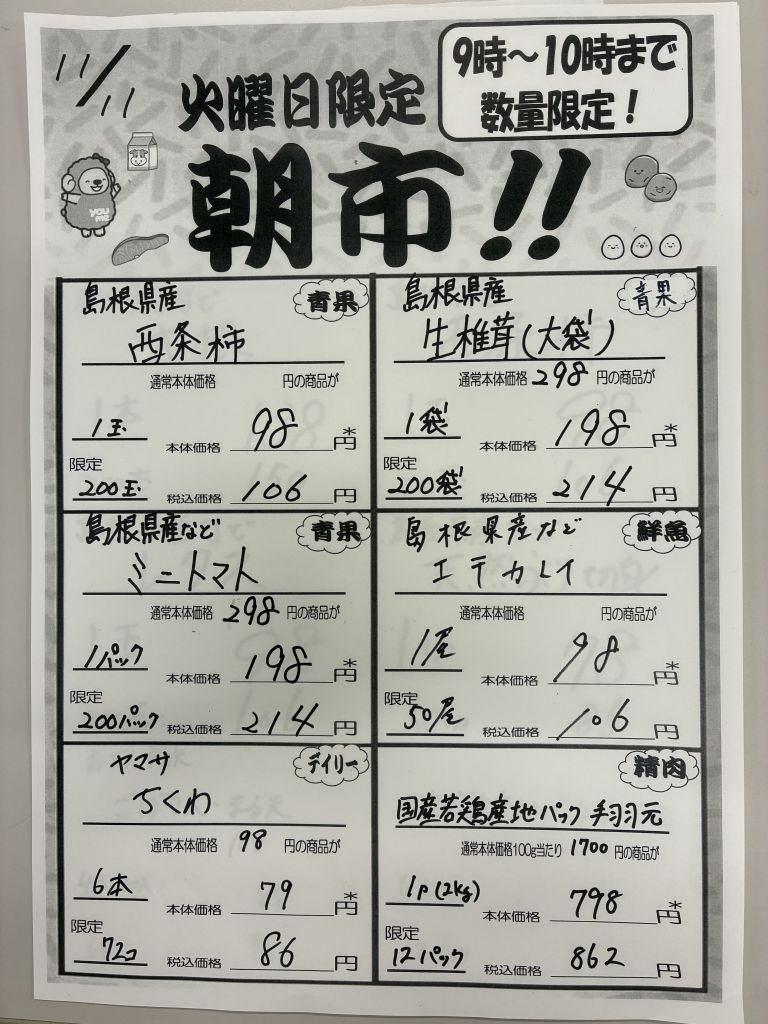 11/11
火曜日限定
9時～10時まで
数量限定！
朝市!!
you
me
島根県産
青果
西条柿
通常本体価格 円の商品が
1玉 本体価格 98円*
限定
200玉 税込価格 106円
島根県産
青果
生椎茸(大袋)
通常本体価格 298円の商品が
1袋 本体価格 198円*
限定
200袋 税込価格 214円
島根県産など
青果
ミニトマト
通常本体価格 298円の商品が
1パック 本体価格 198円*
限定
200パック 税込価格 214円
島根県産など
鮮魚
エテカレイ
通常本体価格 円の商品が
1尾 本体価格 98円*
限定
50尾 税込価格 106円
ヤマサ
デイリー
ちくわ
通常本体価格 98円の商品が
6本 本体価格 79円*
限定
72コ 税込価格 86円
精肉
国産若鶏産地パック 手羽元
通常本体価格100g当たり 1700円の商品が
1P(2kg) 本体価格 798円*
限定
12パック 税込価格 862円